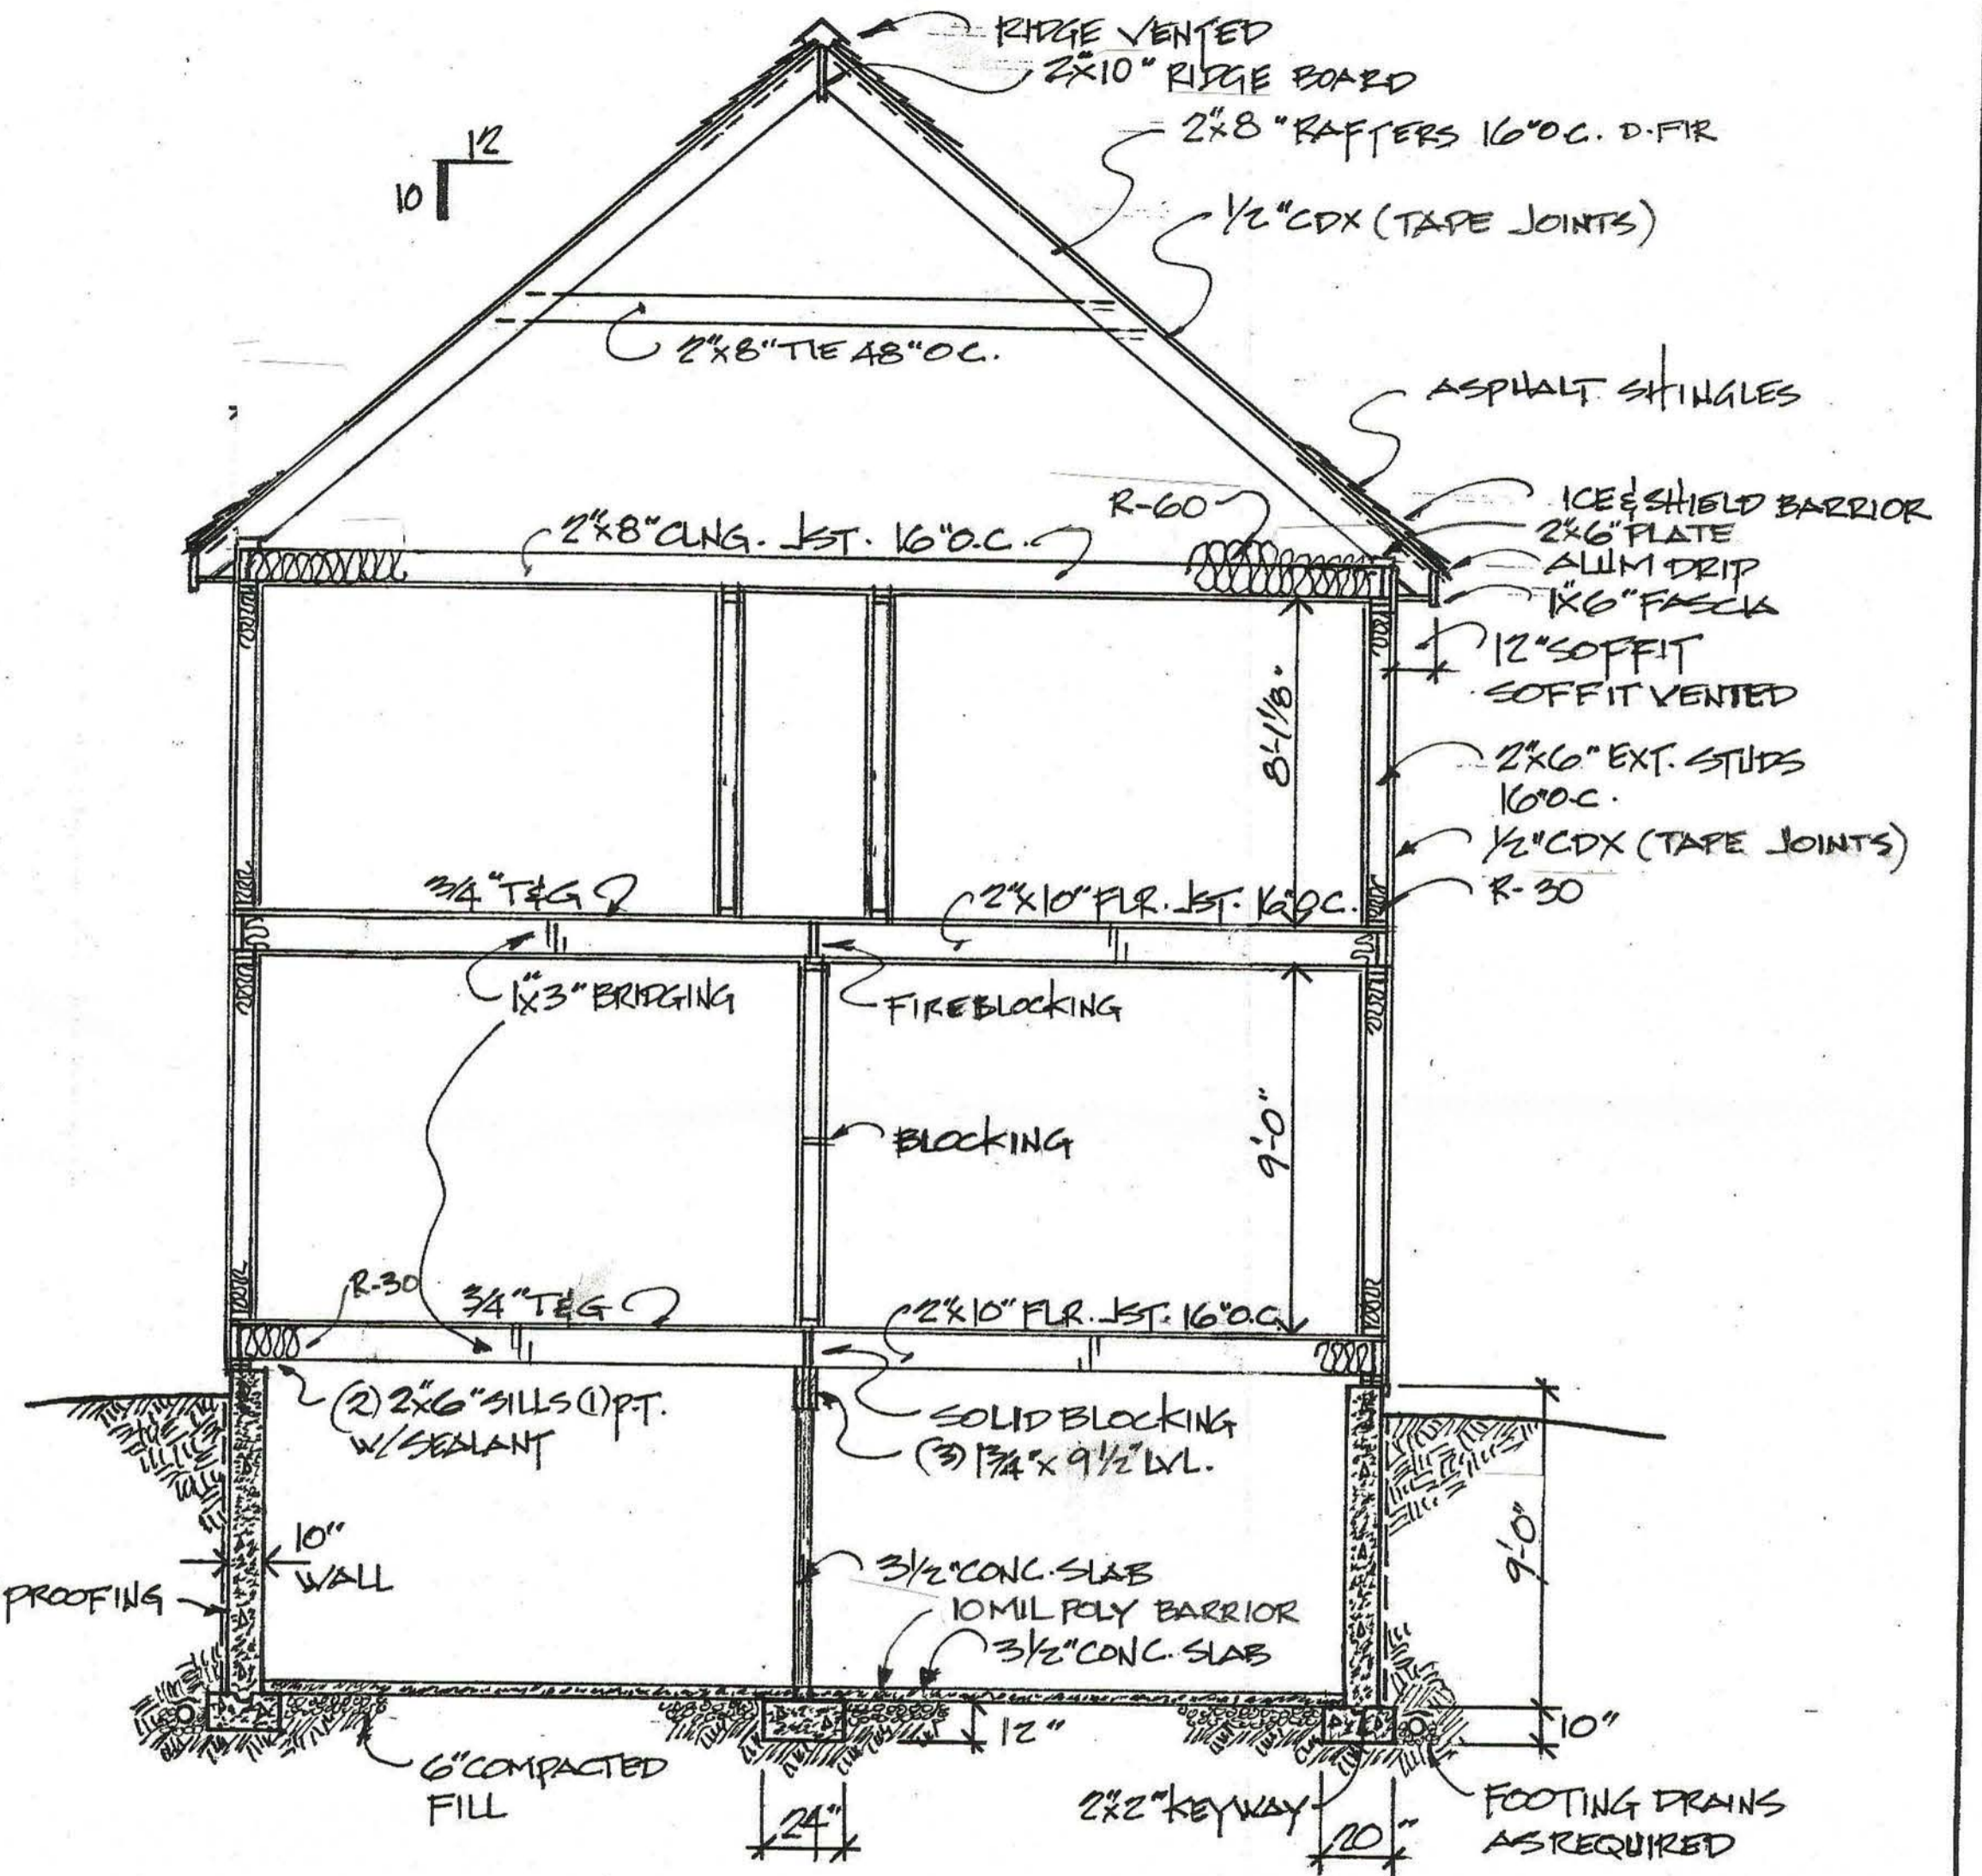 RIDGE VENTED
2"x10" RIDGE BOARD
2"x8" RAFTERS 16"O.C. D.FIR
12
10
1/2"CDX (TAPE JOINTS)
2"x8" TIE 48"O.C.
ASPHALT SHINGLES
R-60
ICE & SHIELD BARRIOR
2"x6" PLATE
ALUM DRIP
1"x6" FASCIA
2"x8" CLNG. JST. 16"O.C.
12" SOFFIT
SOFFIT VENTED
8'-1 1/8"
2"x6" EXT. STUDS
16"O.C.
1/2"CDX (TAPE JOINTS)
R-30
3/4" T&G
2"x10" FLR. JST. 16"O.C.
1"x3" BRIDGING
FIREBLOCKING
BLOCKING
9'-0"
R-30
3/4" T&G
2"x10" FLR. JST. 16"O.C.
(2) 2"x6" SILLS (1) P.T.
W/SEALANT
SOLID BLOCKING
(3) 1 3/4" x 9 1/2" LVL.
9'-0"
10"
WALL
PROOFING
3 1/2" CONC. SLAB
10 MIL POLY BARRIOR
3 1/2" CONC. SLAB
12"
10"
6" COMPACTED
FILL
24"
2"x2" KEYWAY
20"
FOOTING DRAINS
AS REQUIRED